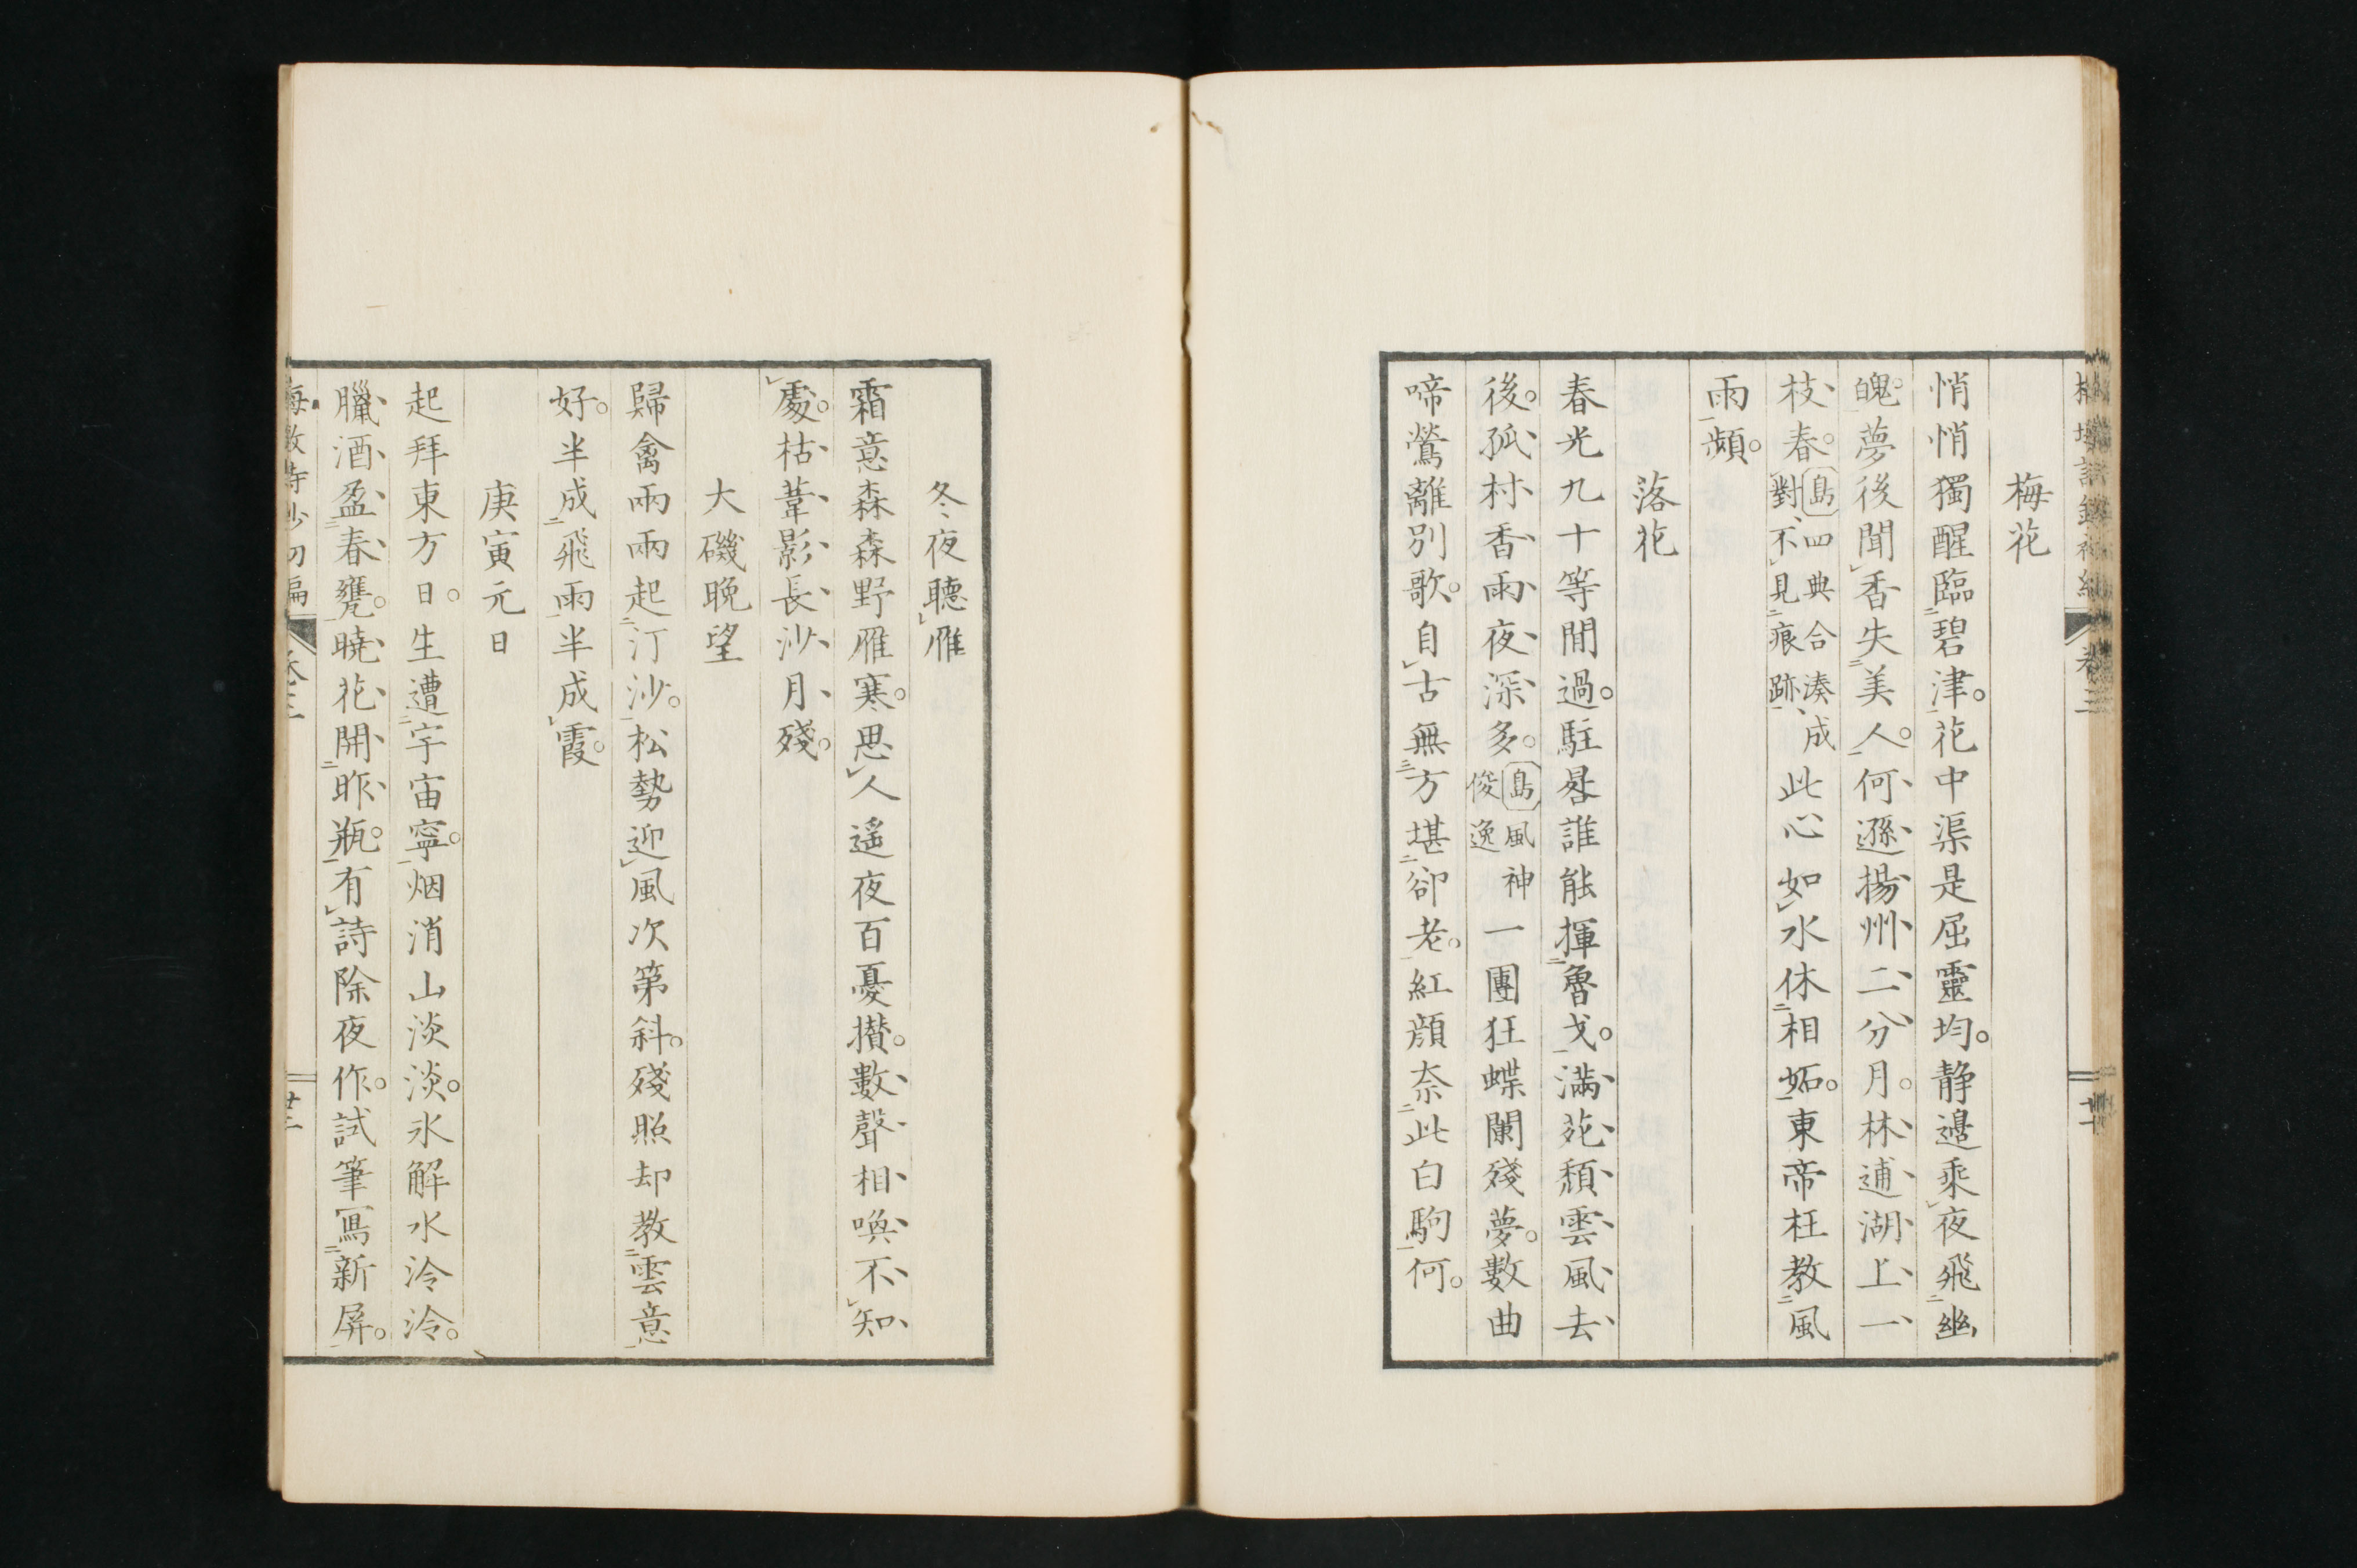 卷三
梅花
悄悄獨醒臨碧津。花中渠是屈靈均。静邊乘夜飛幽
魄。夢後聞香失美人。何遜揚州二分月。林逋湖上一
枝春。島四典合湊成對、不見痕跡、此心如水休相妬。東帝枉教風
雨頻。
落花
春光九十等間過。駐晷誰能揮魯戈。満苑頽雲風去
後。孤村香雨夜深多。島風神俊逸一團狂蝶闌殘夢。數曲
啼鶯離別歌。自古無方堪卻老。紅顔奈此白駒何。
冬夜聽雁
霜意森森野雁寒。思人遥夜百憂攅。數聲相喚不知
處。枯葦影長沙月殘。
大磯晩望
歸禽兩兩起汀沙。松勢迎風次第斜。殘照却教雲意
好。半成飛雨半成霞。
庚寅元日
起拜東方日。生遭宇宙寧。烟消山淡淡。氷解水泠泠。
臘酒盈春甕。曉花開昨瓶。有詩除夜作。試筆寫新屏。
卷三